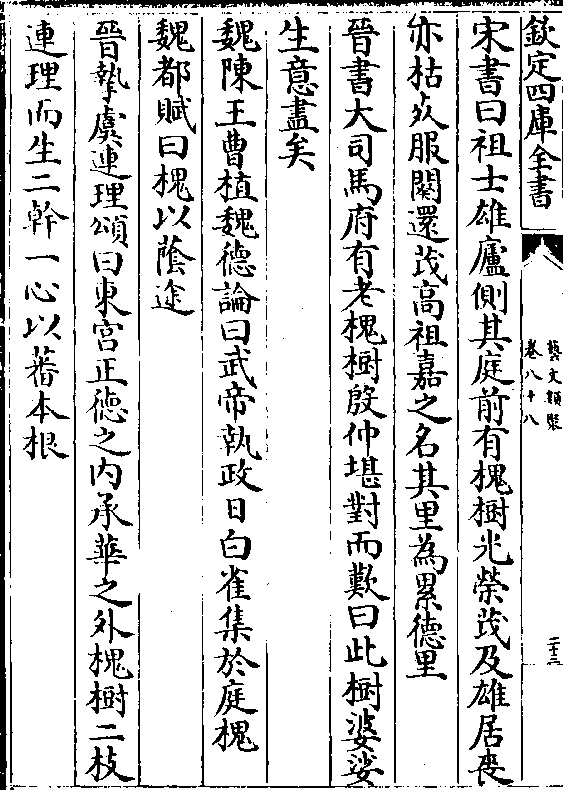 欽定四庫全書
藝文類聚
卷八十八
二十三
宋書曰祖士雄廬側其庭前有槐樹光榮茂及雄居喪
亦枯死服闋還茂高祖嘉之名其里為累德里
晉書大司馬府有老槐樹殷仲堪對而歎曰此樹婆娑
生意盡矣
魏陳王曹植魏德論曰武帝執政日白雀集於庭槐
魏都賦曰槐以蔭途
晉摯虞連理頌曰東宮正德之內承華之外槐樹二枝
連理而生二幹一心以蕃本根